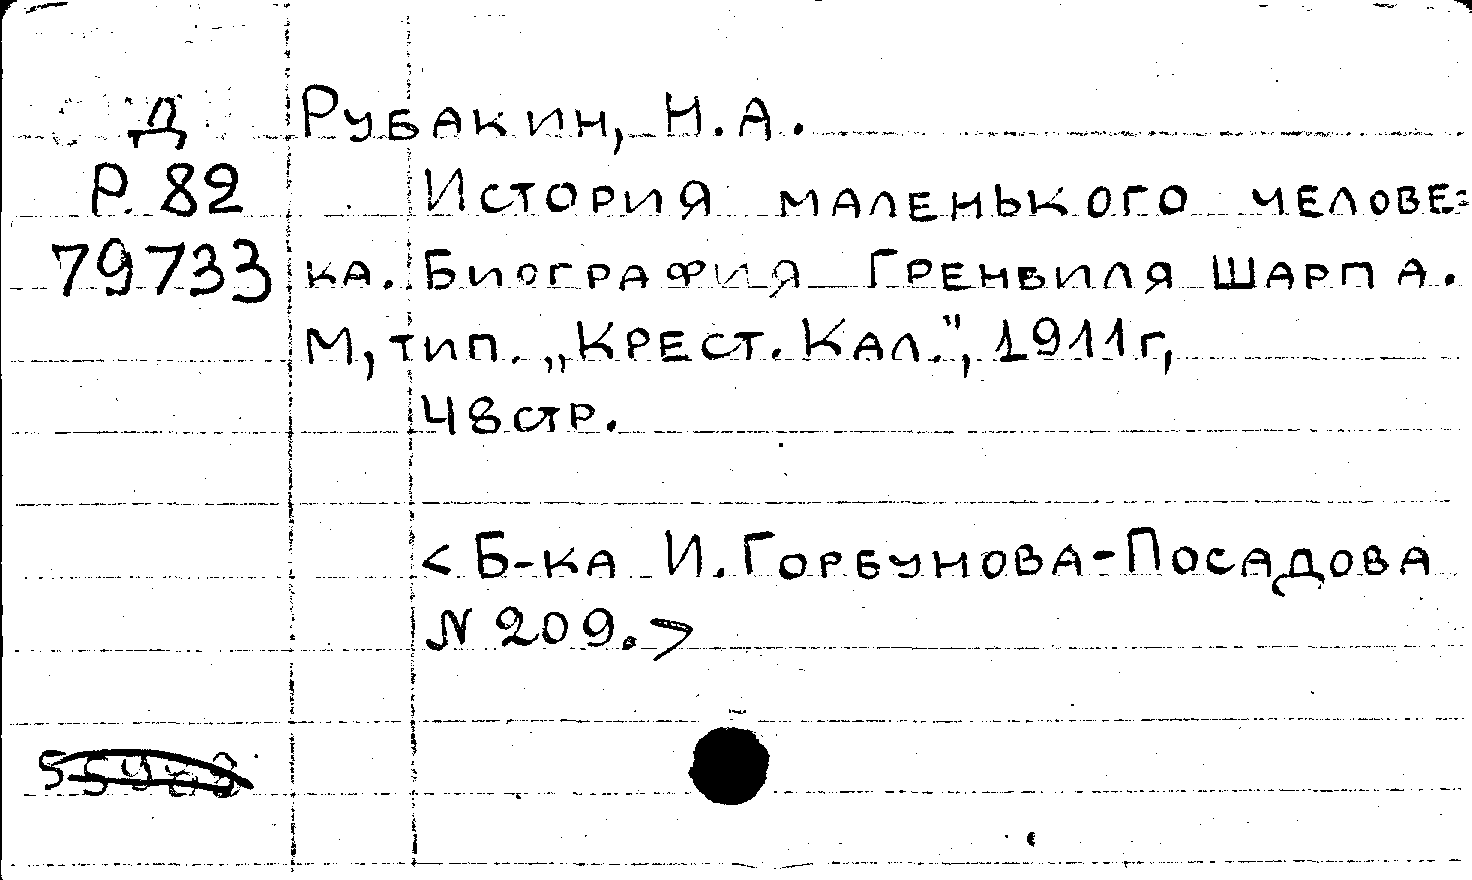 Д Рубакин, Н.А.
Р. 82 История маленького челове=
79733 ка. Биография Гренвиля Шарпа.
М, тип. „Крест. Кал.", 1911г,
48 стр.
<Б-ка И. Горбунова-Посадова
N 209.>